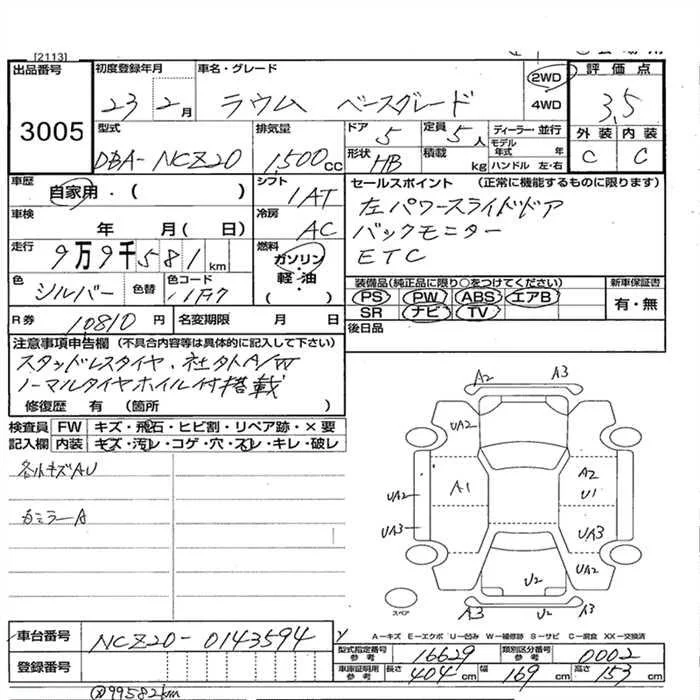 [2113]
出品番号
3005
初度登録年月
23 2月
車名・グレード
ラウム ベースグレード
2WD
4WD
評価点
3.5
外装 内装
C C
型式
DBA-NCZ20
排気量
1,500CC
ドア 5
定員 5人
形状 HB
積載 kg
ディーラー・並行
モデル年式 年
ハンドル 左・右
車歴
自家用・( )
シフト
1AT
車検
年 月( 日)
冷房
AC
走行
9万9千581km
燃料
ガソリン・
軽・油
( )
色
シルバー
色替
色コード
R券 10810円
名変期限 月 日
セールスポイント (正常に機能するものに限ります)
左パワースライドドア
バックモニター
ETC
装備品(純正品に限り○をつけてください)
PS PW ABS エアB
SR ナビ TV
新車保証書
有・無
後日品
注意事項申告欄(不具合内容等は具体的に記入して下さい)
スタッドレスタイヤ、社外A/W
ノーマルタイヤホイル付搭載
修復歴 有 (箇所 )
検査員 FW キズ・飛石・ヒビ割・リペア跡・×要
記入欄 内装 キズ・汚レ・コゲ・穴・スレ・キレ・破レ
各小キズAU
カミラーA
A2 A3
UA2
A1
A2
U1
UA2
UA3
UA3
UA2
U2
A3 U2
スペア
A-キズ E-エクボ U-凹み W-補修跡 S-サビ C-腐食 XX-交換済
車台番号
NCZ20-0143594
登録番号
型式指定番号参考
16629
類別区分番号参考
0002
車庫証明用参考
長さ 404cm 幅 169cm 高さ 153cm
99582km